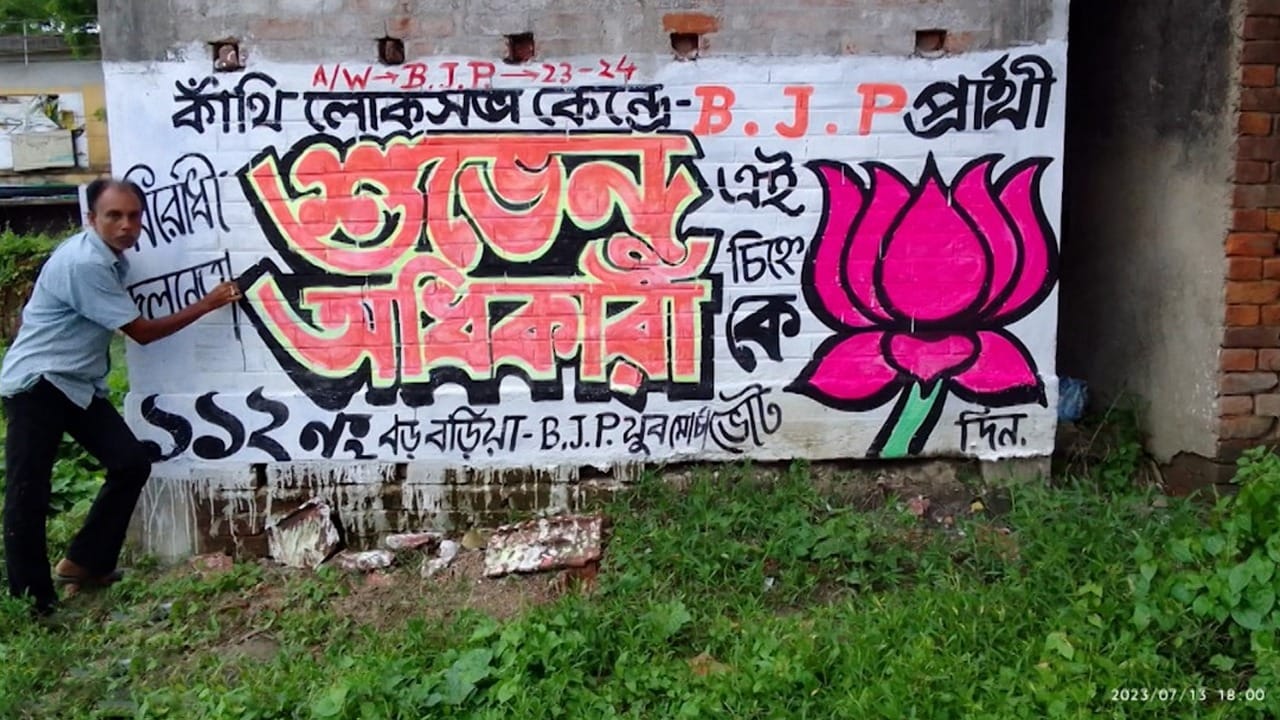 A/W→B.J.P.→23-24
কাঁথি লোকসভা কেন্দ্রে-B.J.P প্রার্থী
বিরোধী
দলনেতা
শুভেন্দু
অধিকারী
এই
চিহ্নে
কে
১১২ নং বড় বড়িয়া-B.J.P. যুব মোর্চা ভোট
দিন.
2023/07/13 18:00